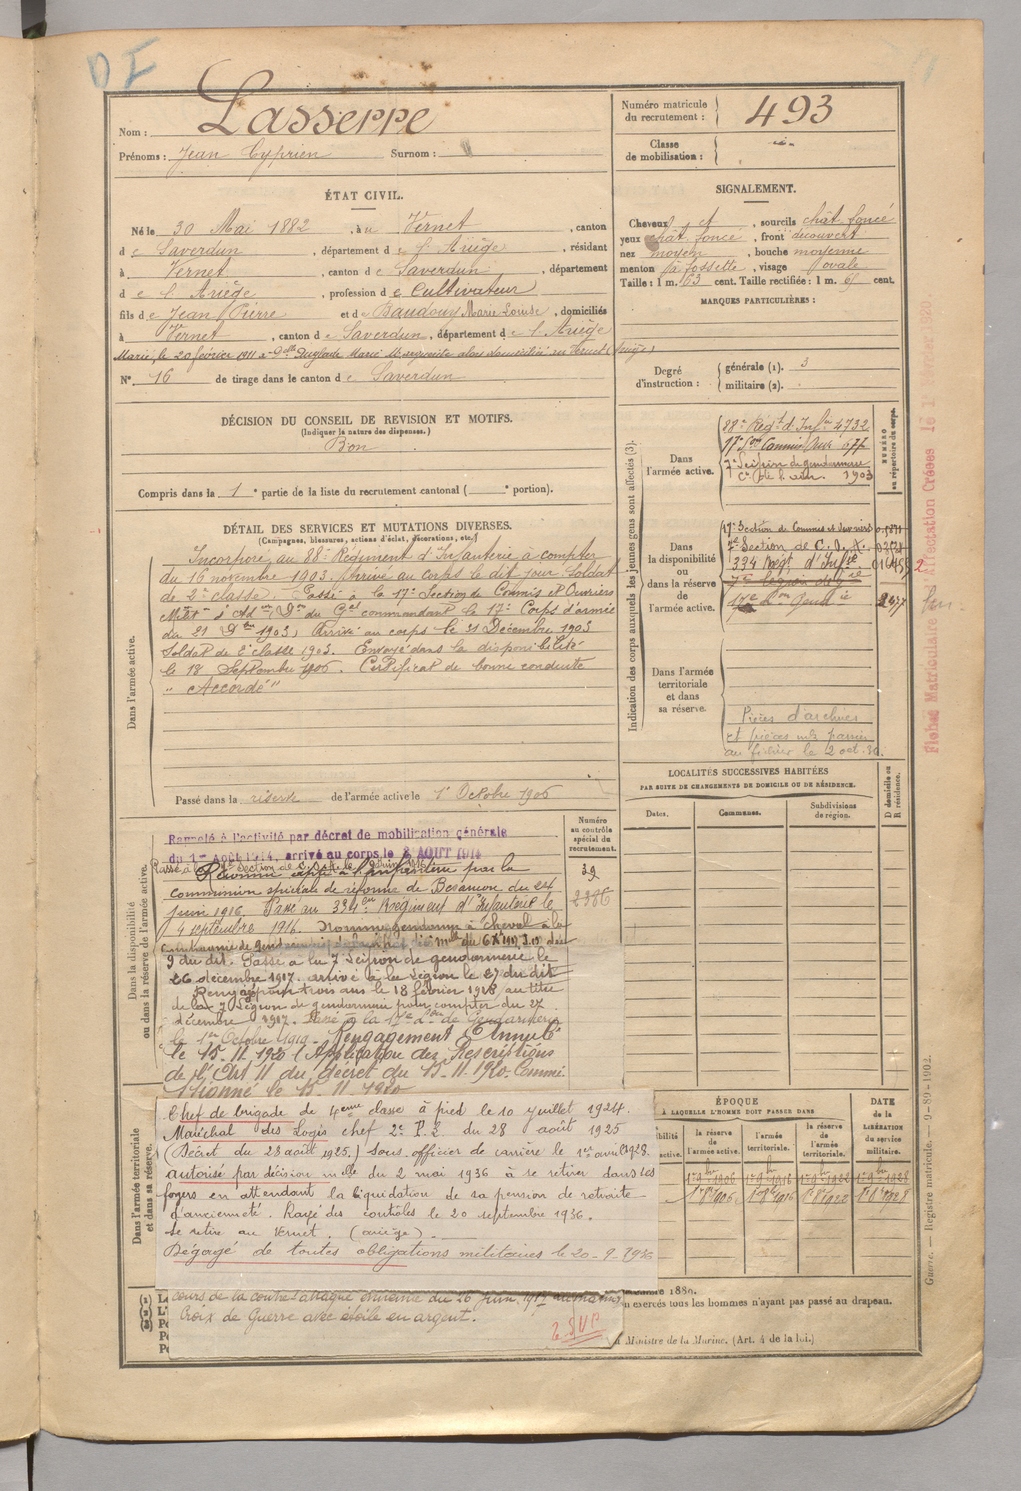 Nom : Lasserre
Prénoms : Jean Cyprien Surnom :
Numéro matricule du recrutement : 493
Classe de mobilisation :
ÉTAT CIVIL.
Né le 30 Mai 1882, à Vernet, canton
de Saverdun, département de l'Ariège, résidant
à Vernet, canton de Saverdun, département
de l'Ariège, profession de Cultivateur
fils de Jean Pierre et de Baudouy Marie Louise, domiciliés
à Vernet, canton de Saverdun, département de l'Ariège
Marié le 20 février 1911 à Dlle Anglade Marie Marguerite alors domiciliée au Vernet (Ariège)
N° 16 de tirage dans le canton de Saverdun
SIGNALEMENT.
Cheveux et, sourcils chât. foncé
yeux chât. foncé, front découvert
nez moyen, bouche moyenne
menton à fossette, visage ovale
Taille : 1 m. 63 cent. Taille rectifiée : 1 m. cent.
MARQUES PARTICULIÈRES :
Degré d'instruction : générale (1). 3
militaire (2).
DÉCISION DU CONSEIL DE REVISION ET MOTIFS.
(Indiquer la nature des dispenses.)
Bon
Compris dans la 1e partie de la liste du recrutement cantonal ( e portion).
DÉTAIL DES SERVICES ET MUTATIONS DIVERSES.
(Campagnes, blessures, actions d'éclat, décorations, etc.)
Dans l'armée active.
Incorporé au 88e Régiment d'Infanterie à compter
du 16 novembre 1903. Arrivé au corps le dit jour. Soldat
de 2e classe. Passé à la 17e Section de Commis et Ouvriers
du Gal commandant le 17e Corps d'armée
du 21 Dbre 1903, Arrivé au corps le 31 Décembre 1903
Soldat de 2e classe 1903. Envoyé dans la disponibilité
le 18 Septembre 1906. Certificat de bonne conduite
"Accordé"
Passé dans la réserve de l'armée active le 1er Octobre 1906
Indication des corps auxquels les jeunes gens sont affectés (3).
NUMÉRO au répertoire du corps.
Dans l'armée active.
88e Régt d'Infie 4732
17e Son Commis Ouv. 677
7e Légion de gendarmerie
1903
Dans la disponibilité ou dans la réserve de l'armée active.
17e Section de Commis et ouvriers
Section de C. O. A.
334 Régt d'Infie
17e Lon Gendie 2477
Dans l'armée territoriale et dans sa réserve.
Pièces d'archives
et pièces mles passées
au fichier le 2 oct. 36.
Fiches Matriculaire d'Affectation Créées le
LOCALITÉS SUCCESSIVES HABITÉES
PAR SUITE DE CHANGEMENTS DE DOMICILE OU DE RÉSIDENCE.
Dates. Communes. Subdivisions de région. D domicile ou R résidence.
Dans la disponibilité ou dans la réserve de l'armée active.
Numéro au contrôle spécial du recrutement.
39
2386
Rappelé à l'activité par décret de mobilisation générale
du 1er Août 1914, arrivé au corps le 3 AOUT 1914
Passé à la Section de C.O.A. le 9 Juin 1916
commission spéciale de réforme de Besançon du 24
juin 1916. Passé au 334eme Régiment d'Infanterie le
4 septembre 1916. Nommé gendarme à cheval à la
9 du dit. Passé à la 7 Légion de gendarmerie le
26 décembre 1917. arrivé à la Légion le 27 du dit
Rengagé pour trois ans le 18 février 1918 au titre
de la 7 Légion de gendarmerie pour compter du 27
décembre 1917. Passé à la 17e Lon de Gendarmerie
le 1er Octobre 1919. Rengagement Annulé
le 15.11.1920 (Application des Prescriptions
de l'Art 11 du décret du 15.11.1920. Commi-
ssionné le 15.11.1920
Dans l'armée territoriale et dans sa réserve.
Chef de brigade de 4eme classe à pied le 10 juillet 1924.
Maréchal des Logis chef du 28 août 1925
(Décret du 28 août 1925.) Sous-officier de carrière le 1er avril 1928.
autorisé par décision mlle du 2 mai 1936 à se retirer dans ses
foyers en attendant la liquidation de sa pension de retraite
d'ancienneté. Rayé des contrôles le 20 septembre 1936.
se retire au Vernet. (ariège).
Dégagé de toutes obligations militaires le 20-9-1936
cours de la contre attaque ennemie du 26 juin 1917
Croix de Guerre avec étoile en argent.
T.S.V.P.
ÉPOQUE
À LAQUELLE L'HOMME DOIT PASSER DANS
la réserve de l'armée active.
l'armée territoriale.
la réserve de l'armée territoriale.
DATE de la LIBÉRATION du service militaire.
n exercés tous les hommes n'ayant pas passé au drapeau.
Ministre de la Marine. (Art. 4 de la loi.)
Guerre. — Registre matricule. — 9-89-1902.